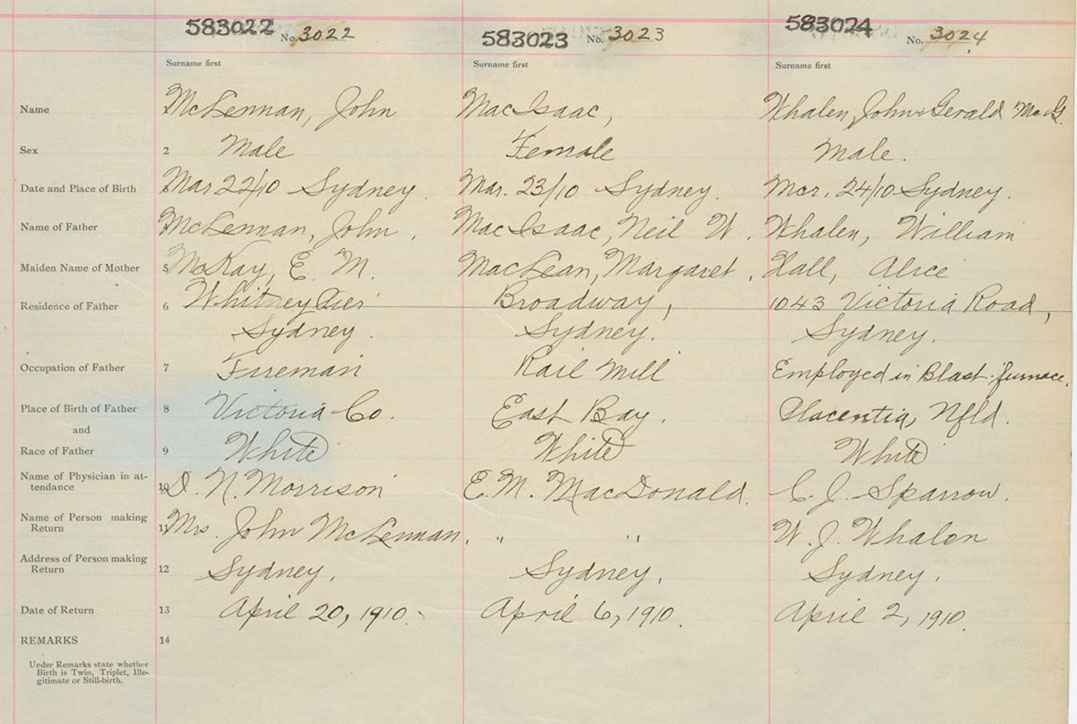 583022 No. 3022 583023 No. 3023 583024 No. 3024
Surname first Surname first Surname first
Name McLennan, John MacIsaac, Whalen, John Gerald McG.
Sex 2 Male Female Male.
Date and Place of Birth Mar 22/10 Sydney. Mar. 23/10 Sydney. Mar. 24/10 Sydney.
Name of Father McLennan, John. MacIsaac, Neil W. Whalen, William
Maiden Name of Mother 5 McKay, E. M. MacLean, Margaret. Hall, Alice
Residence of Father 6 Whitney Pier Broadway, 1043 Victoria Road,
Sydney. Sydney. Sydney.
Occupation of Father 7 Fireman Rail Mill Employed in Blast furnace.
Place of Birth of Father 8 Victoria Co. East Bay. Placentia, Nfld.
and
Race of Father 9 White White White
Name of Physician in at-
tendance 10 D. N. Morrison E. M. MacDonald. C. J. Sparrow.
Name of Person making
Return 11 Mrs. John McLennan. " " W. J. Whalen
Address of Person making
Return 12 Sydney. Sydney. Sydney.
Date of Return 13 April 20, 1910. April 6, 1910. April 2, 1910.
REMARKS 14
Under Remarks state whether
Birth is Twin, Triplet, Ille-
gitimate or Still-birth.